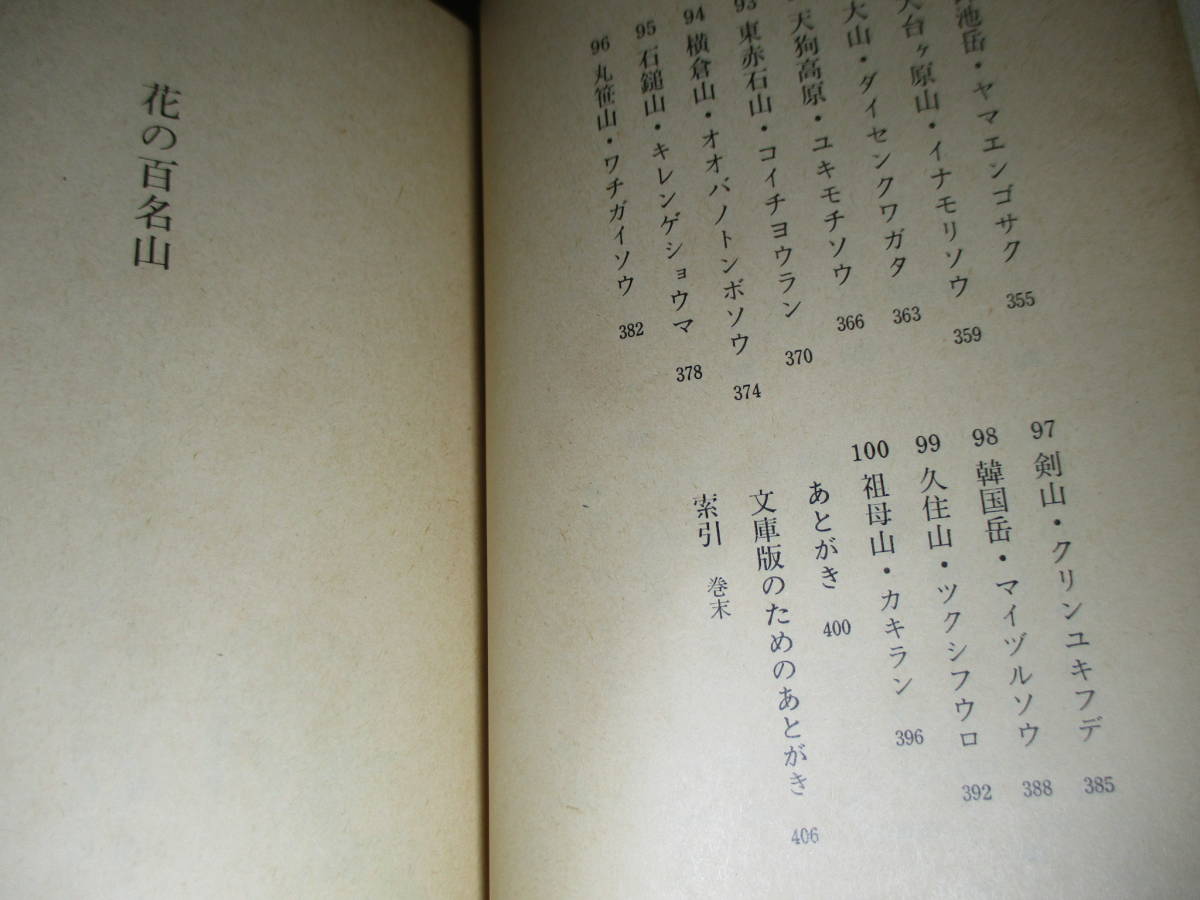 池岳・ヤマエンゴサク 355
天台ヶ原山・イナモリソウ 359
大山・ダイセンクワガタ 363
天狗高原・ユキモチソウ 366
93 東赤石山・コイチヨウラン 370
94 横倉山・オオバノトンボソウ 374
95 石鎚山・キレンゲショウマ 378
96 丸笹山・ワチガイソウ 382
97 剣山・クリンユキフデ 385
98 韓国岳・マイヅルソウ 388
99 久住山・ツクシフウロ 392
100 祖母山・カキラン 396
あとがき 400
文庫版のためのあとがき 406
索引 巻末
花の百名山